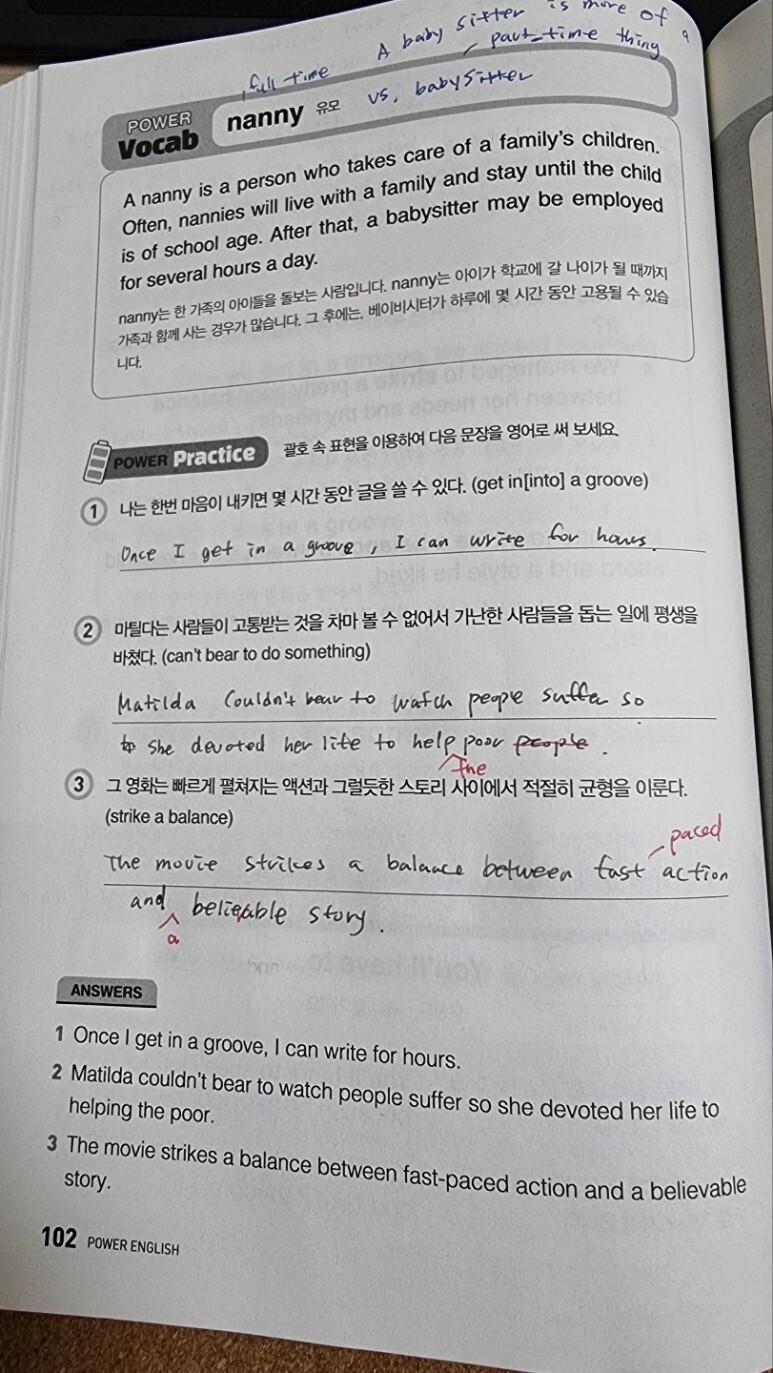 A baby sitter is more of a
full time
part-time thing
POWER Vocab nanny 유모 vs. babysitter
A nanny is a person who takes care of a family's children.
Often, nannies will live with a family and stay until the child
is of school age. After that, a babysitter may be employed
for several hours a day.
nanny는 한 가족의 아이들을 돌보는 사람입니다. nanny는 아이가 학교에 갈 나이가 될 때까지
가족과 함께 사는 경우가 많습니다. 그 후에는, 베이비시터가 하루에 몇 시간 동안 고용될 수 있습
니다.
POWER Practice 괄호 속 표현을 이용하여 다음 문장을 영어로 써 보세요.
1 나는 한번 마음이 내키면 몇 시간 동안 글을 쓸 수 있다. (get in[into] a groove)
Once I get in a groove, I can write for hours.
2 마틸다는 사람들이 고통받는 것을 차마 볼 수 없어서 가난한 사람들을 돕는 일에 평생을
바쳤다. (can't bear to do something)
Matilda couldn't bear to watch people suffer so
she devoted her life to help poor people.
the
3 그 영화는 빠르게 펼쳐지는 액션과 그럴듯한 스토리 사이에서 적절히 균형을 이룬다.
(strike a balance)
paced
The movie strikes a balance between fast action
and believable story.
a
ANSWERS
1 Once I get in a groove, I can write for hours.
2 Matilda couldn't bear to watch people suffer so she devoted her life to
helping the poor.
3 The movie strikes a balance between fast-paced action and a believable
story.
102 POWER ENGLISH